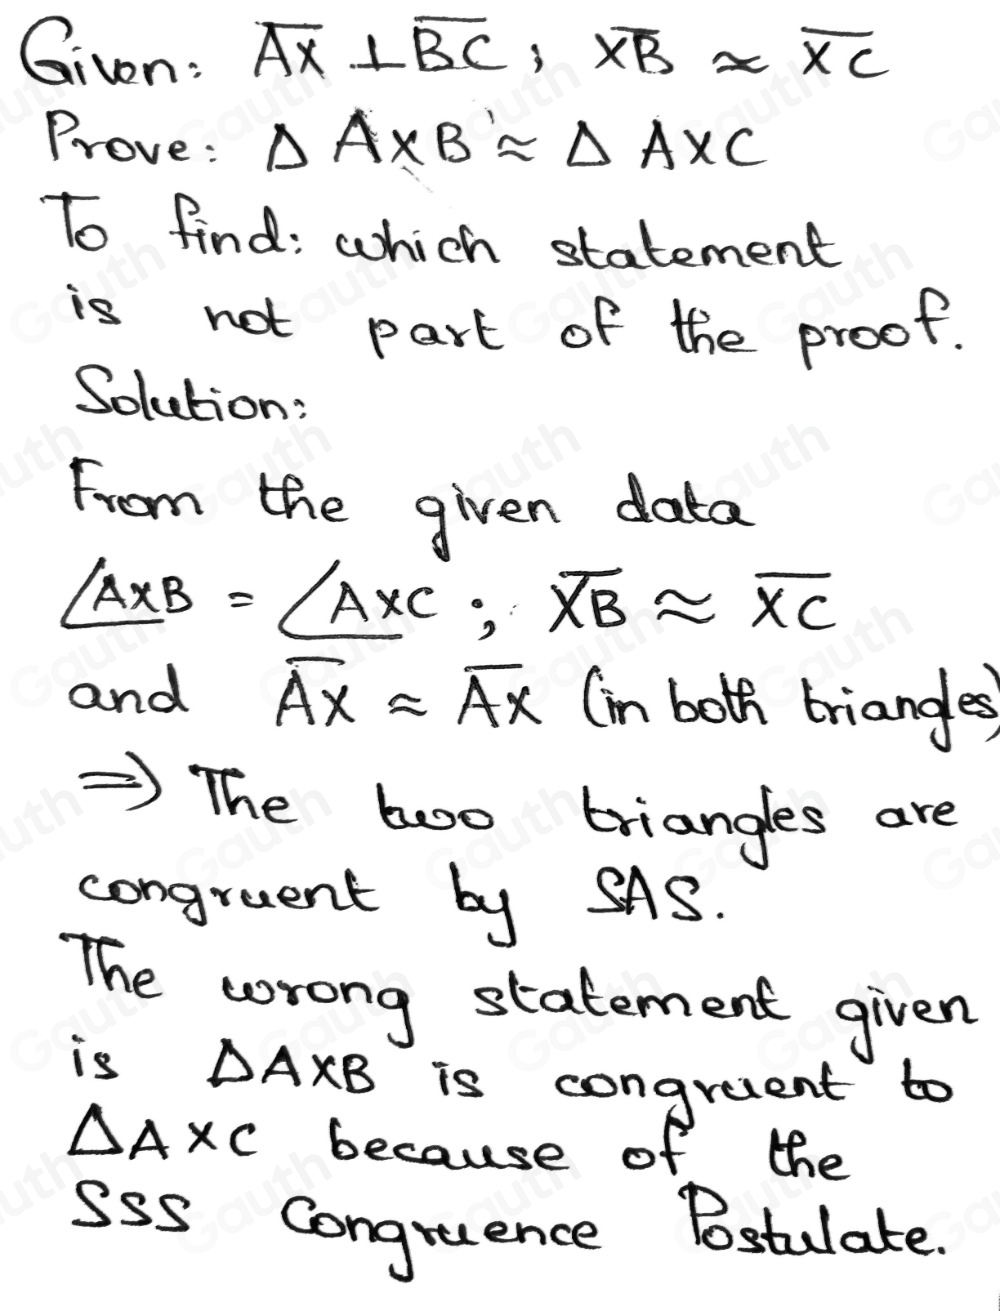 Given: A̅X̅ ⊥ B̅C̅ ; X̅B̅ ≈ X̅C̅
Prove: Δ AXB ≈ Δ AXC
To find: which statement
is not part of the proof.
Solution:
From the given data
∠AXB = ∠AXC ; X̅B̅ ≈ X̅C̅
and A̅X̅ ≈ A̅X̅ (in both triangles)
⇒ The two triangles are
congruent by SAS.
The wrong statement given
is ΔAXB is congruent to
ΔAXC because of the
SSS Congruence Postulate.